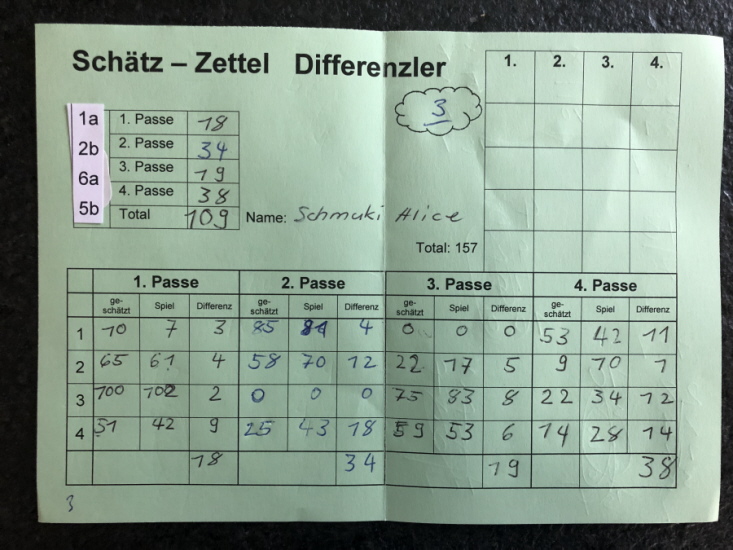 Schätz – Zettel Differenzler
1. 2. 3. 4.
3
1a 1. Passe 18
2b 2. Passe 34
6a 3. Passe 19
5b 4. Passe 38
Total 109
Name: Schmuki Alice
Total: 157
1. Passe 2. Passe 3. Passe 4. Passe
ge-schätzt Spiel Differenz ge-schätzt Spiel Differenz ge-schätzt Spiel Differenz ge-schätzt Spiel Differenz
1 10 7 3 85 81 4 0 0 0 53 42 11
2 65 61 4 58 70 12 22 17 5 9 10 1
3 100 102 2 0 0 0 75 83 8 22 34 12
4 51 42 9 25 43 18 59 53 6 14 28 14
18 34 19 38
3